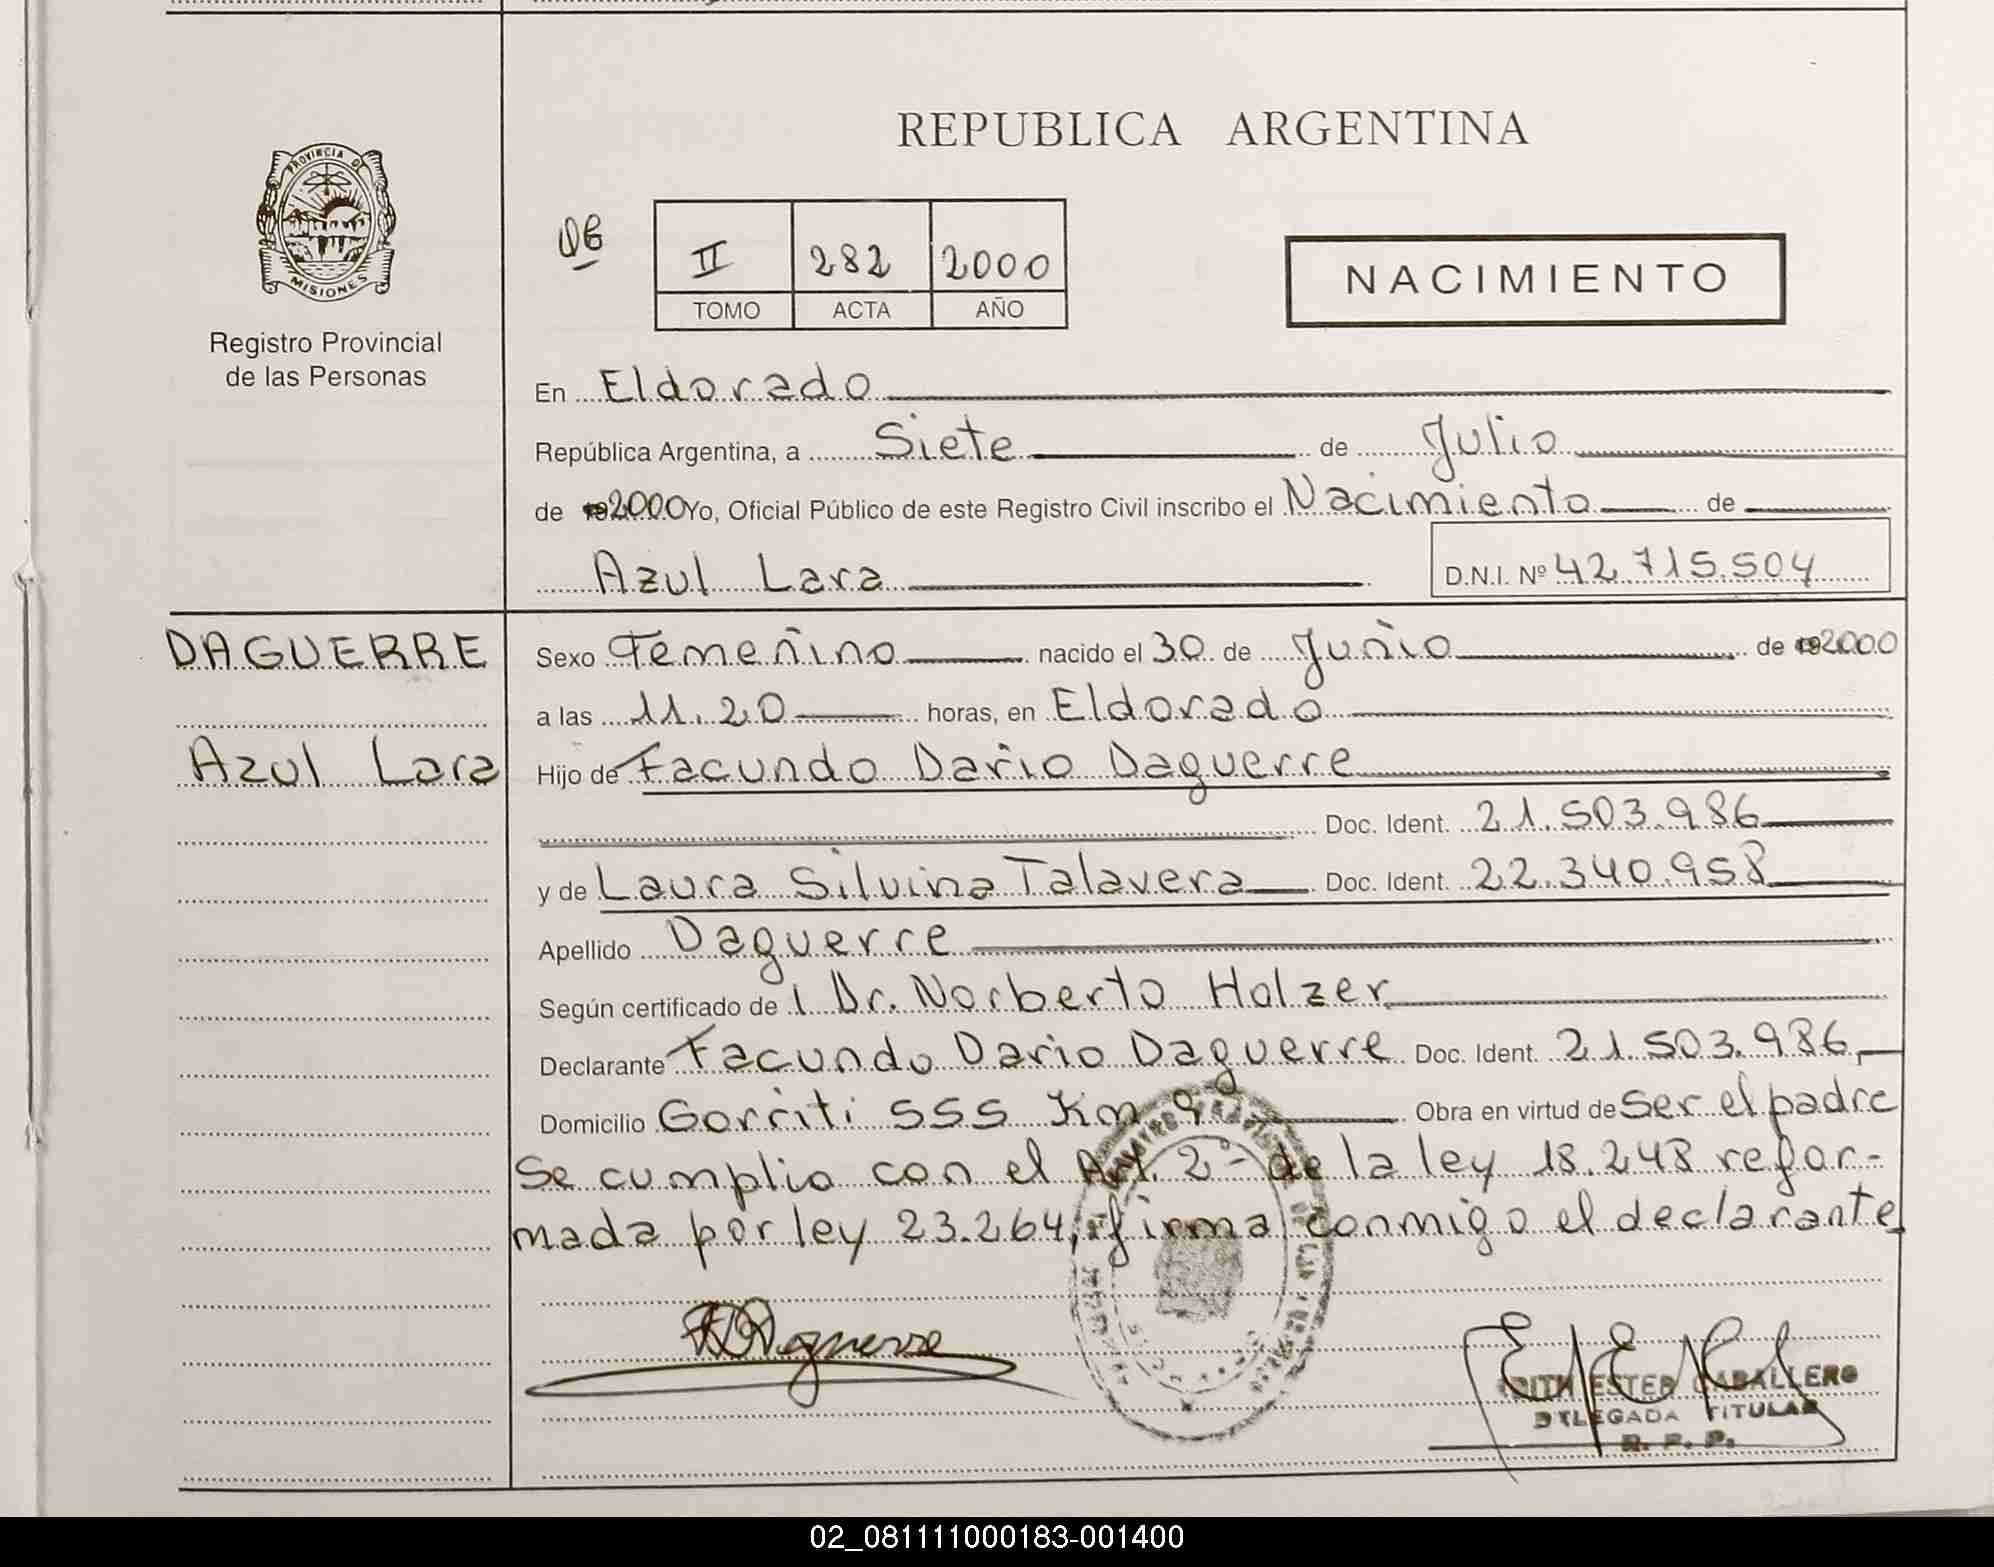 REPUBLICA ARGENTINA
PROVINCIA DE
MISIONES
Registro Provincial
de las Personas
II 282 2000
TOMO ACTA AÑO
NACIMIENTO
En Eldorado
República Argentina, a Siete de Julio
de 19 2000 Yo, Oficial Público de este Registro Civil inscribo el Nacimiento de
Azul Lara D.N.I. Nº 42.715.504
DAGUERRE
Azul Lara
Sexo Femenino nacido el 30 de Junio de 19 2000
a las 11.20 horas, en Eldorado
Hijo de Facundo Dario Daguerre
Doc. Ident. 21.503.986
y de Laura Silvina Talavera Doc. Ident. 22.340.958
Apellido Daguerre
Según certificado de l Dr. Norberto Holzer
Declarante Facundo Dario Daguerre Doc. Ident. 21.503.986
Domicilio Gorriti 555 Km 9 Obra en virtud de ser el padre
Se cumplio con el Art. 2º de la ley 18.248 refor-
mada por ley 23.264, firma conmigo el declarante
Daguerre
EDITH ESTER CABALLERO
DELEGADA TITULAR
R. P. P.
02_081111000183-001400